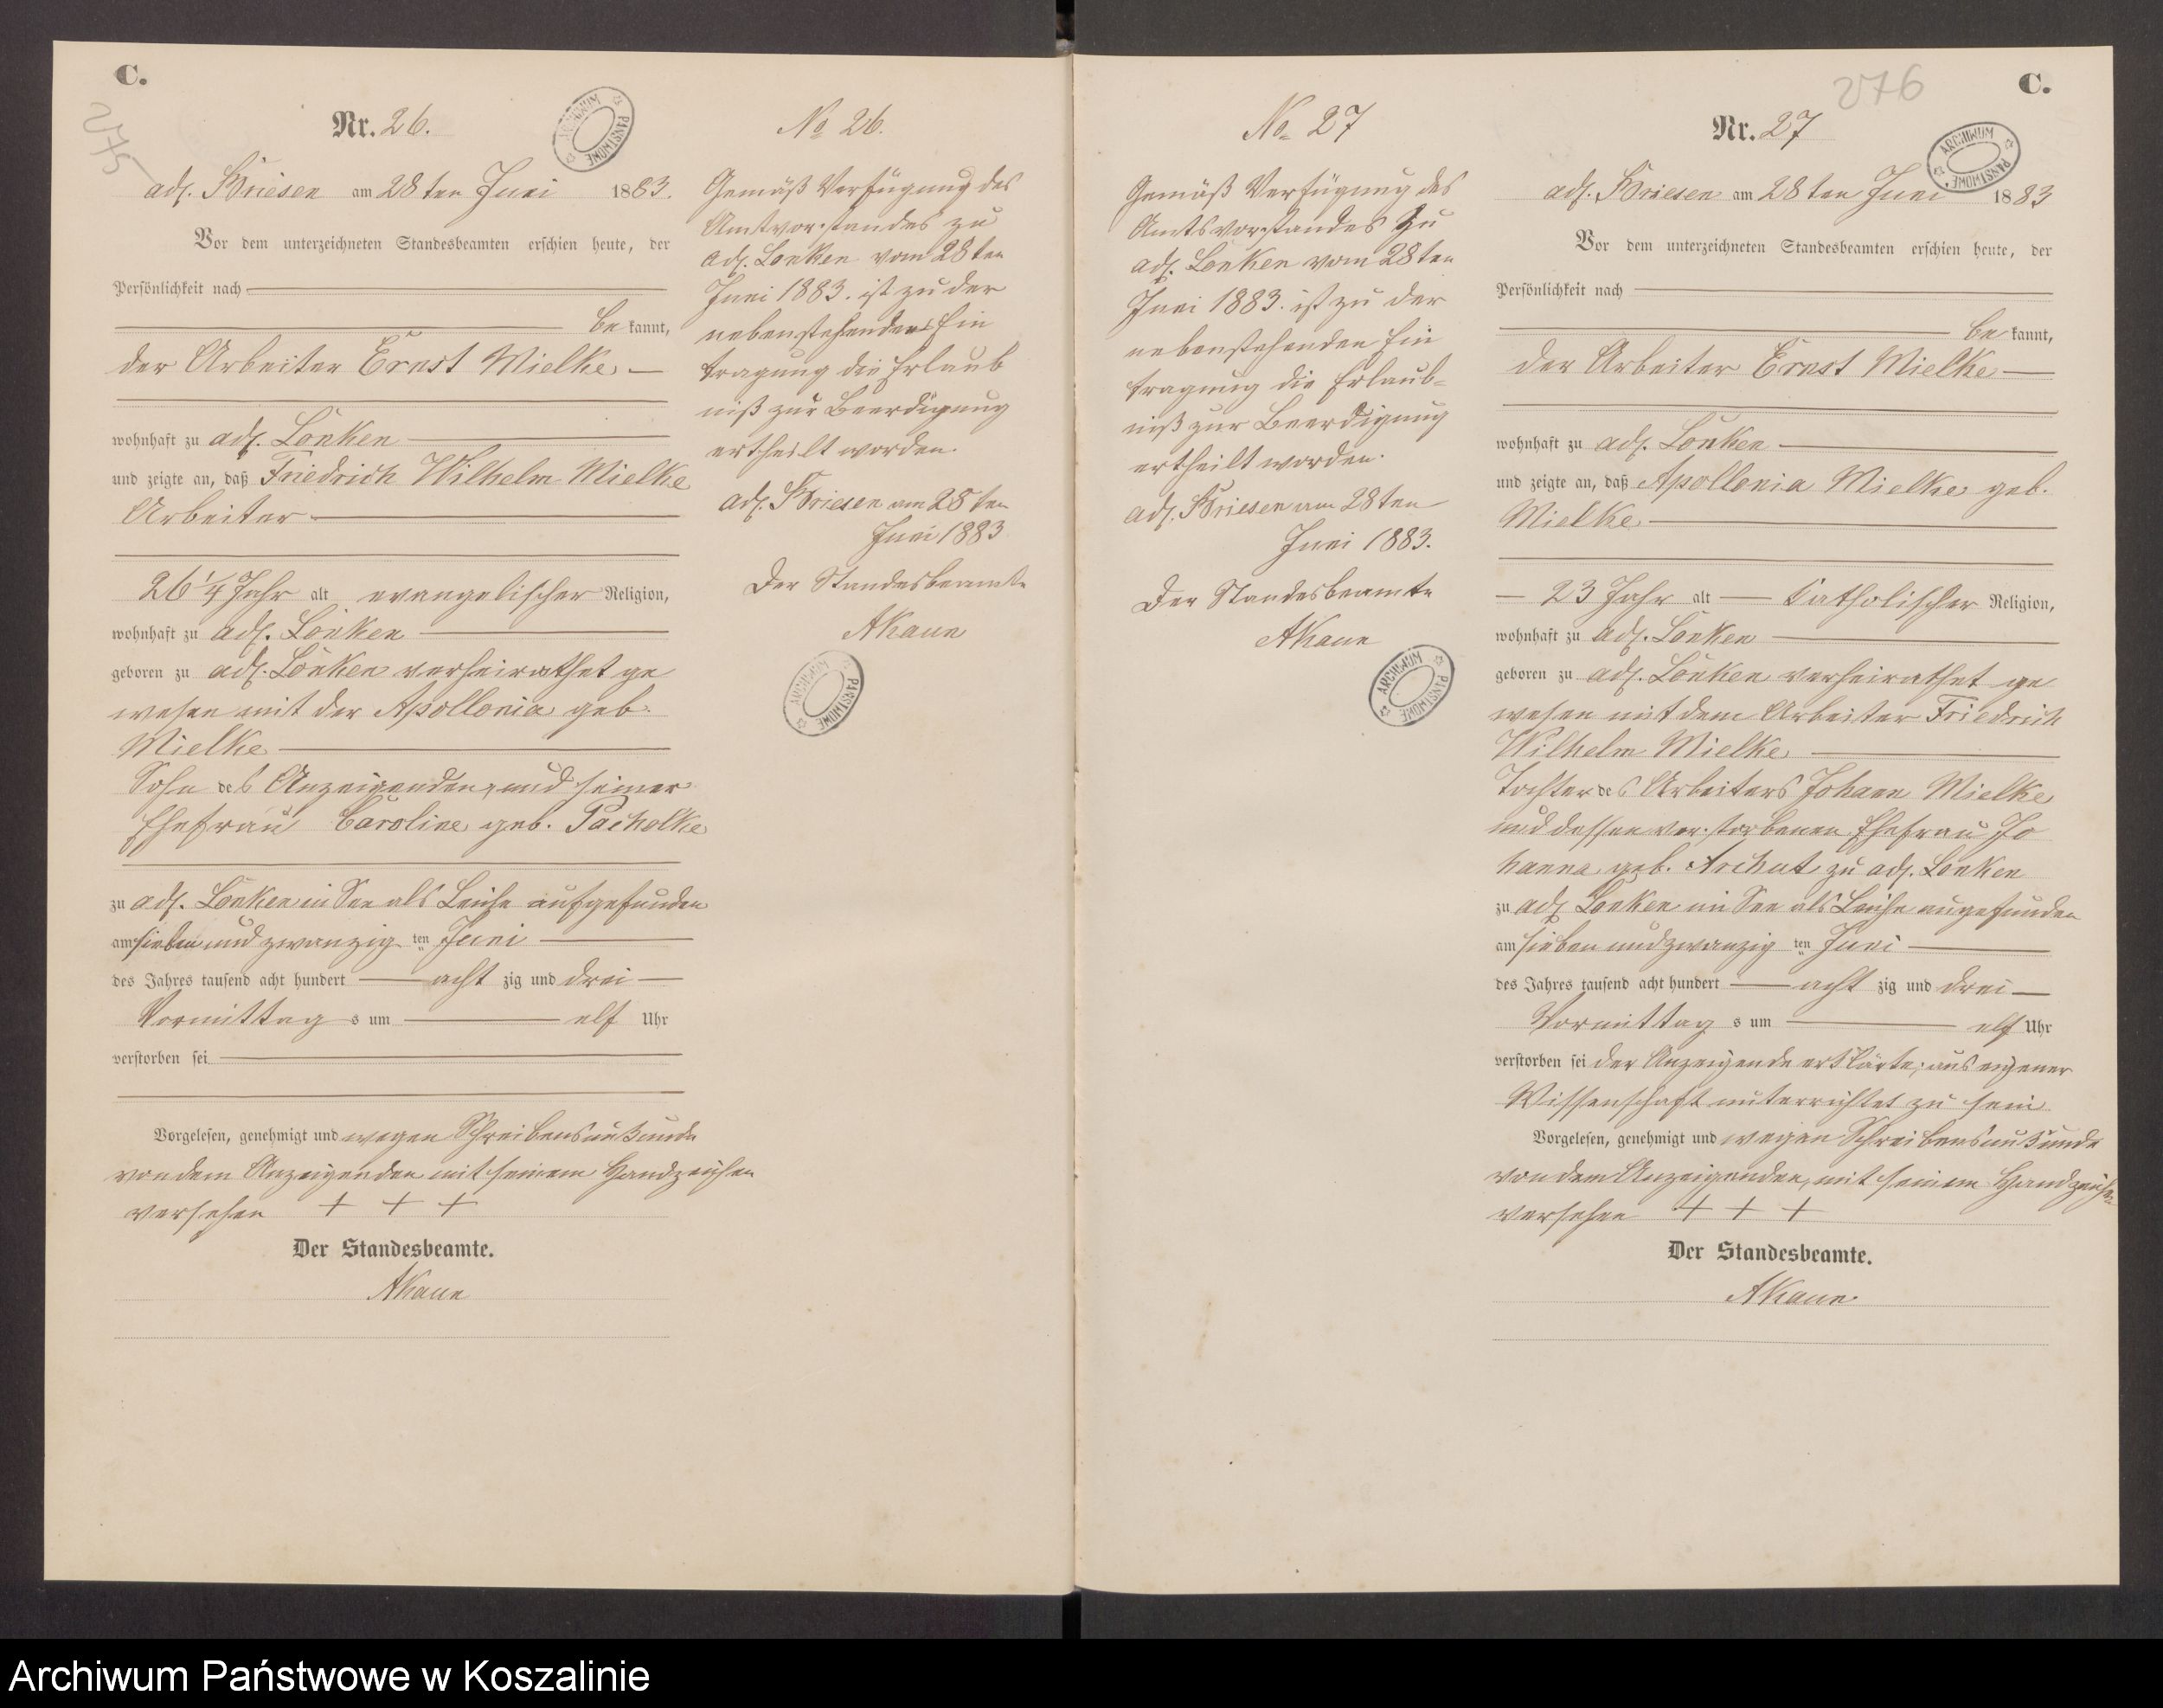 C.
275
Nr. 26.
adl. Briesen am 28ten Juni 1883.
Vor dem unterzeichneten Standesbeamten erschien heute, der
Persönlichkeit nach
be kannt,
der Arbeiter Ernst Mielke
wohnhaft zu adl. Lonken
und zeigte an, daß Friedrich Wilhelm Mielke
Arbeiter
26 1/4 Jahr alt evangelischer Religion,
wohnhaft zu adl. Lonken
geboren zu adl. Lonken verheirathet ge
wesen mit der Apollonia geb.
Mielke
Sohn des Anzeigenden, und seiner
Ehefrau Caroline geb. Pacholke
zu adl. Lonken im See als Leiche aufgefunden
am sieben und zwanzig ten Juni
des Jahres tausend acht hundert acht zig und drei
Vormittag s um elf Uhr
verstorben sei
Vorgelesen, genehmigt und wegen Schreibensunkunde
von dem Anzeigenden mit seinem Handzeichen
versehen + + +
Der Standesbeamte.
AKaun
No 26.
Gemäß Verfügung des
Amtvorstandes zu
adl. Lonken vom 28ten
Juni 1883. ist zu der
nebenstehenden Ein
tragung die Erlaub
niß zur Beerdigung
ertheilt worden.
adl. Briesen am 28ten
Juni 1883
Der Standesbeamte
AKaun
ARCHIWUM PAŃSTWOWE
No. 27
Gemäß Verfügung des
Amtsvorstandes zu
adl. Lonken vom 28ten
Juni 1883. ist zu der
nebenstehenden Ein
tragung die Erlaub=
niß zur Beerdigung
ertheilt worden.
adl. Briesen am 28ten
Juni 1883.
Der Standesbeamte
AKaun
ARCHIWUM PAŃSTWOWE
276
C.
Nr. 27
ARCHIWUM PAŃSTWOWE
adl. Briesen am 28ten Juni 1883
Vor dem unterzeichneten Standesbeamten erschien heute, der
Persönlichkeit nach
be kannt,
der Arbeiter Ernst Mielke
wohnhaft zu adl. Lonken
und zeigte an, daß Apollonia Mielke geb.
Mielke
23 Jahr alt katholischer Religion,
wohnhaft zu adl. Lonken
geboren zu adl. Lonken verheirathet ge
wesen mit dem Arbeiter Friedrich
Wilhelm Mielke
Tochter des Arbeiters Johann Mielke
und dessen verstorbenen Ehefrau Jo
hanna geb. Archut zu adl. Lonken
zu adl. Lonken im See als Leiche aufgefunden
am sieben und zwanzig ten Juni
des Jahres tausend acht hundert acht zig und drei
Vormittag s um elf Uhr
verstorben sei der Anzeigende erklärte, aus eigener
Wissenschaft unterrichtet zu sein
Vorgelesen, genehmigt und wegen Schreibensunkunde
von dem Anzeigenden, mit seinem Handzeichen
versehen + + +
Der Standesbeamte.
AKaun
Archiwum Państwowe w Koszalinie